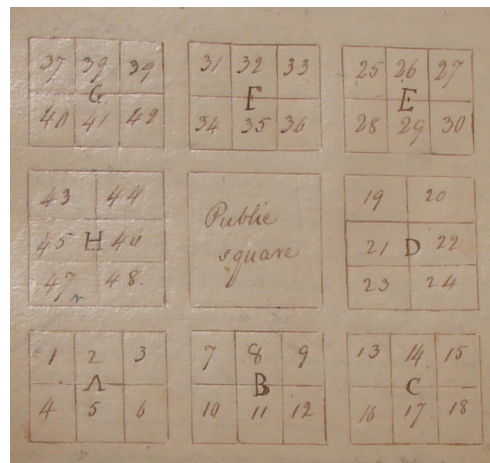 37 39 39
G
40 41 42
31 32 33
F
34 35 36
25 26 27
E
28 29 30
43 44
45 H 46
47 48.
Public
square
19 20
21 D 22
23 24
1 2 3
A
4 5 6
7 8 9
B
10 11 12
13 14 15
C
16 17 18